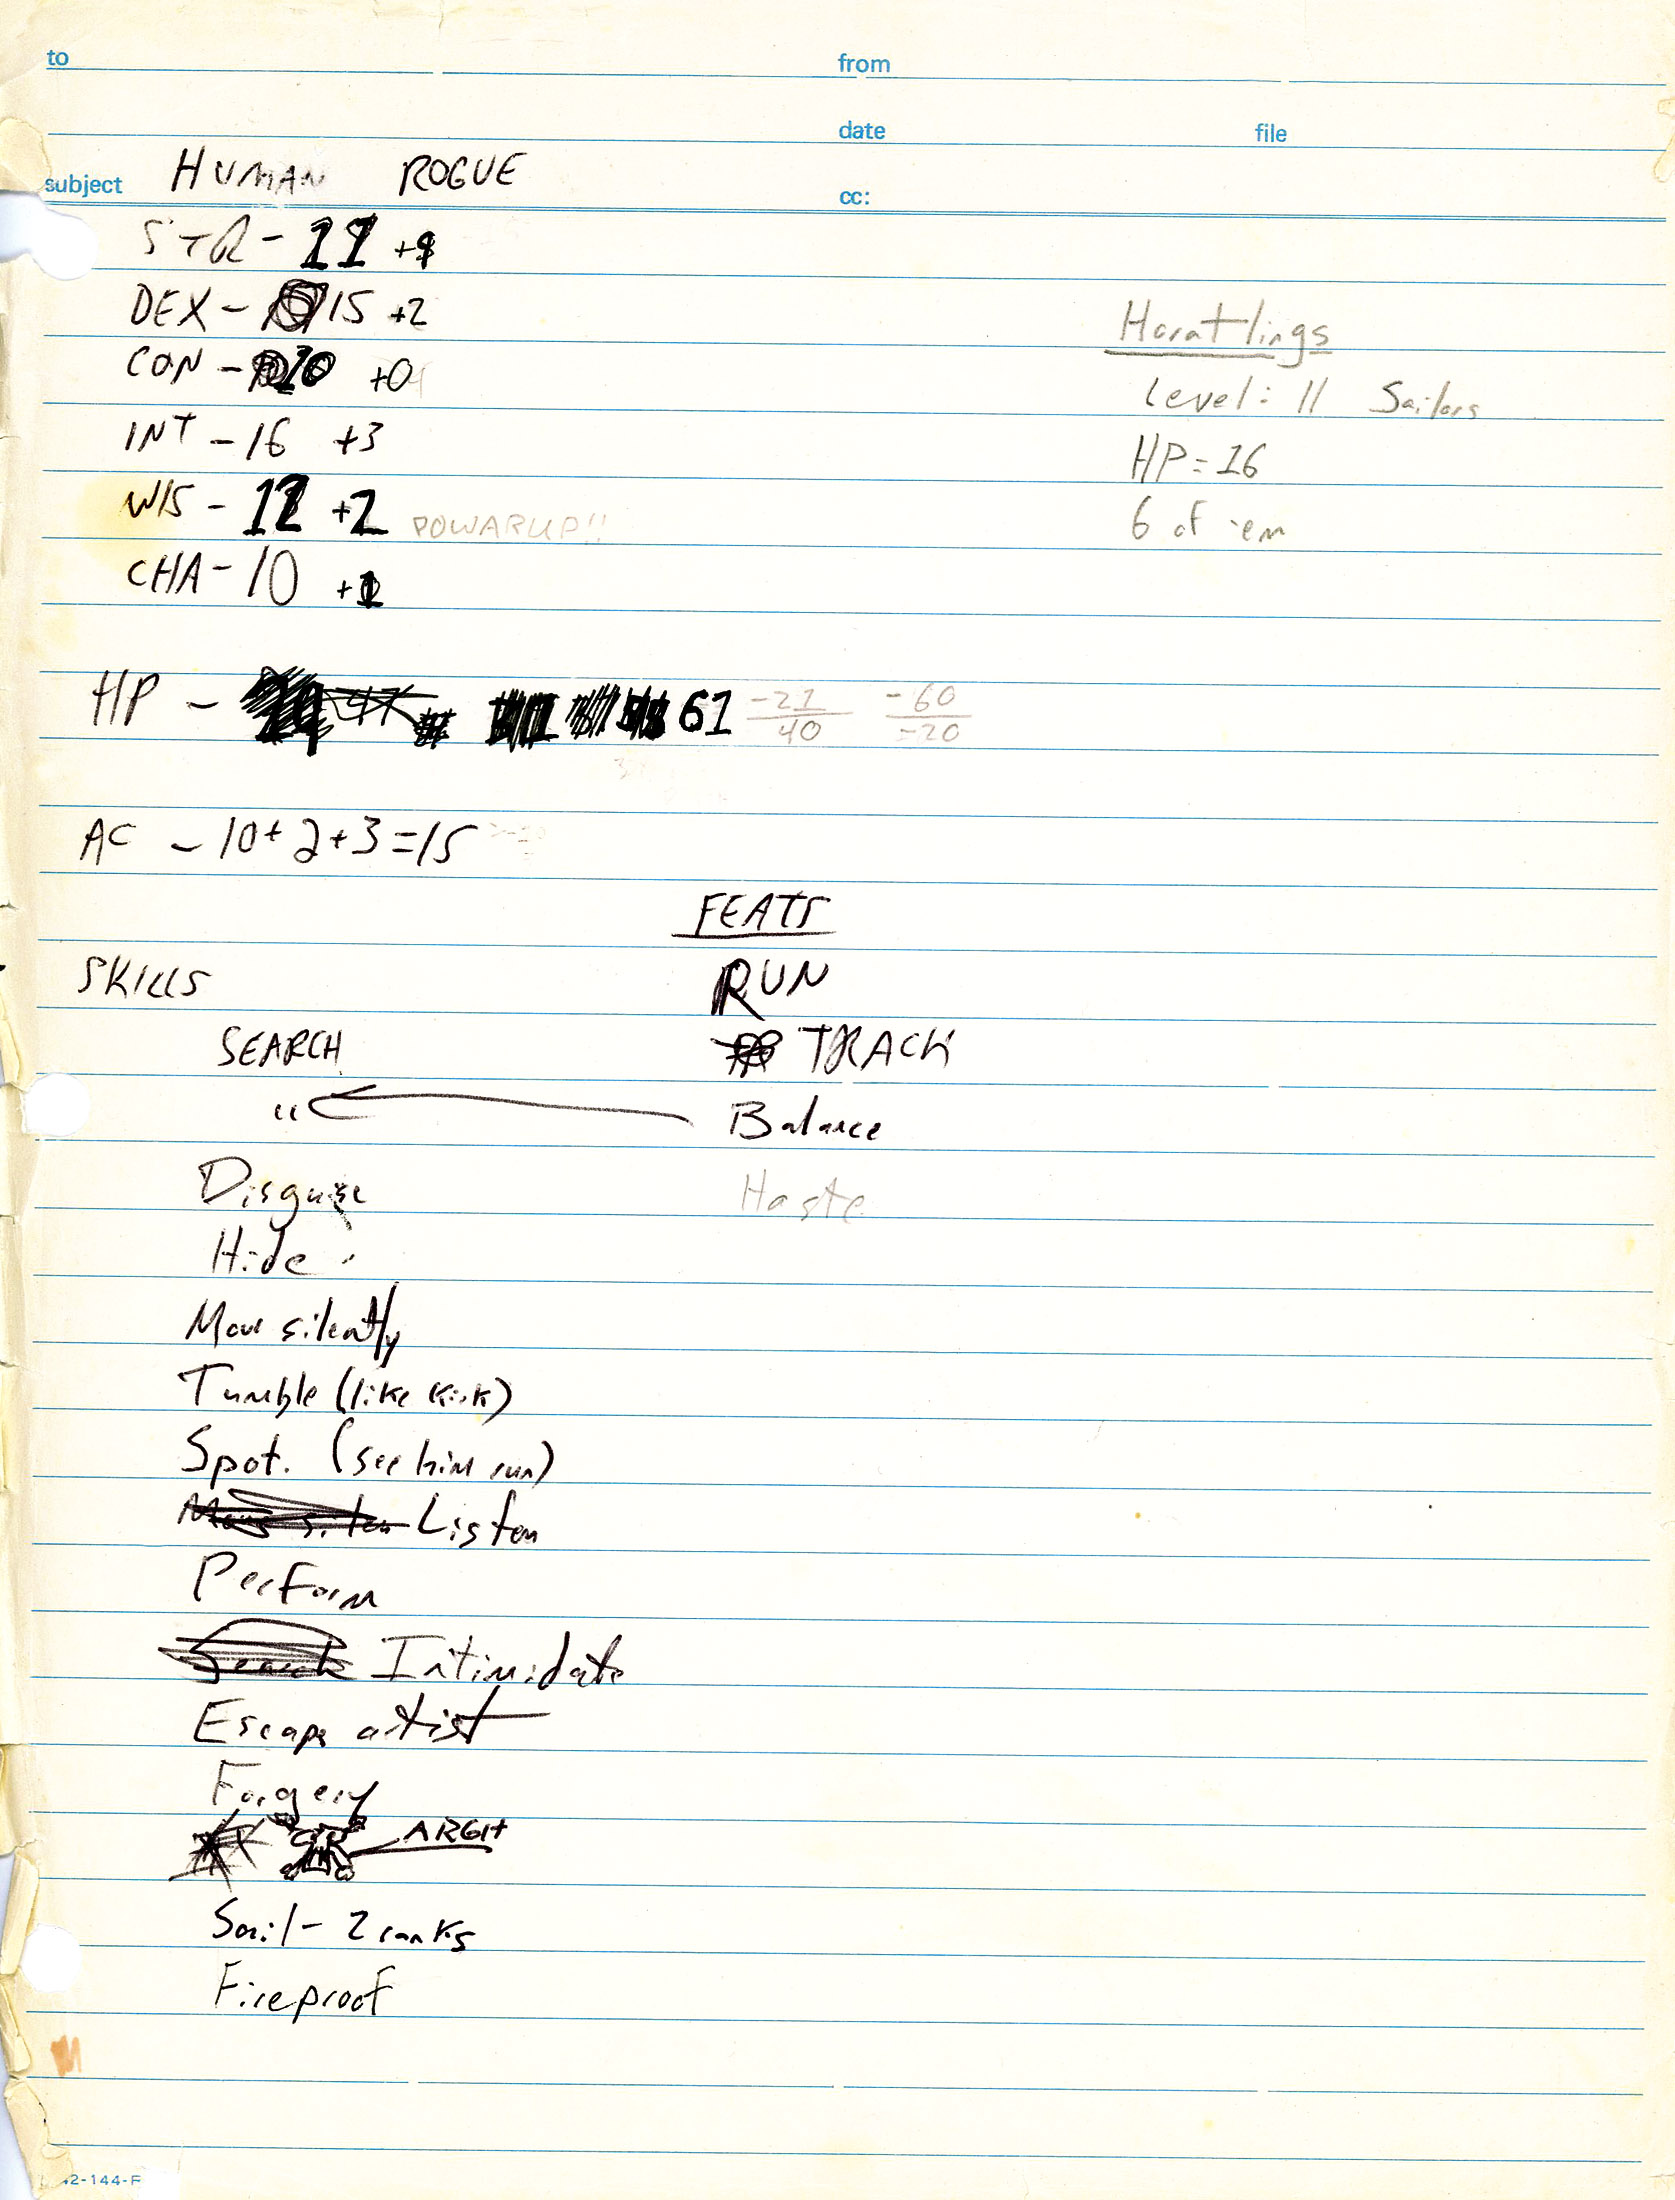 to from
date file
subject HUMAN ROGUE cc:
STR - 11
DEX - 15 +2
CON - 10 +0
INT - 16 +3
WIS - 12 +2 POWARUP!!
CHA - 10 +1
Level: 11 Sailors
HP = 16
6 of 'em
HP - 61 -21 40 -60 -20
AC - 10 + 2 + 3 = 15
FEATS
SKILLS RUN
SEARCH TRACK
" Balance
Disguise Haste
Hide
Move silently
Tumble (like Kirk)
Spot. (see him run)
Listen
Perform
Search Intimidate
Escape artist
Forgery
ARGH
Sail - 2 ranks
Fireproof
2-144-F